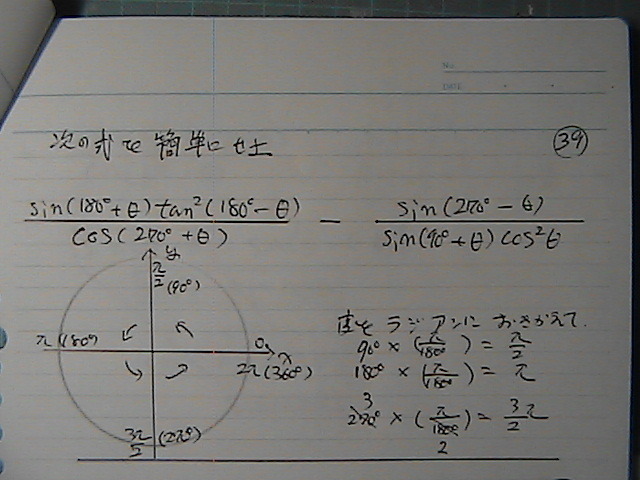 No.
DATE
次の式を簡単にせよ
39
sin(180°+θ)tan²(180°-θ) / cos(270°+θ) - sin(270°-θ) / sin(90°+θ)cos²θ
y
π/2 (90°)
π(180°)
0
x
2π(360°)
3π/2 (270°)
度をラジアンにおきかえて.
90° × (π/180°) = π/2
180° × (π/180°) = π
3
270° × (π/180°) = 3π/2
2